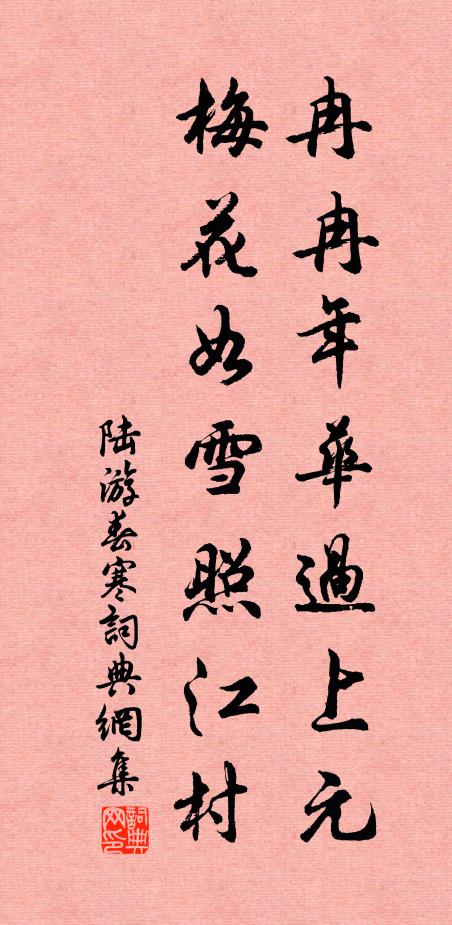 冉冉年華過上元
梅花如雪照江村
陆游春寒詞典網集
詞典网印